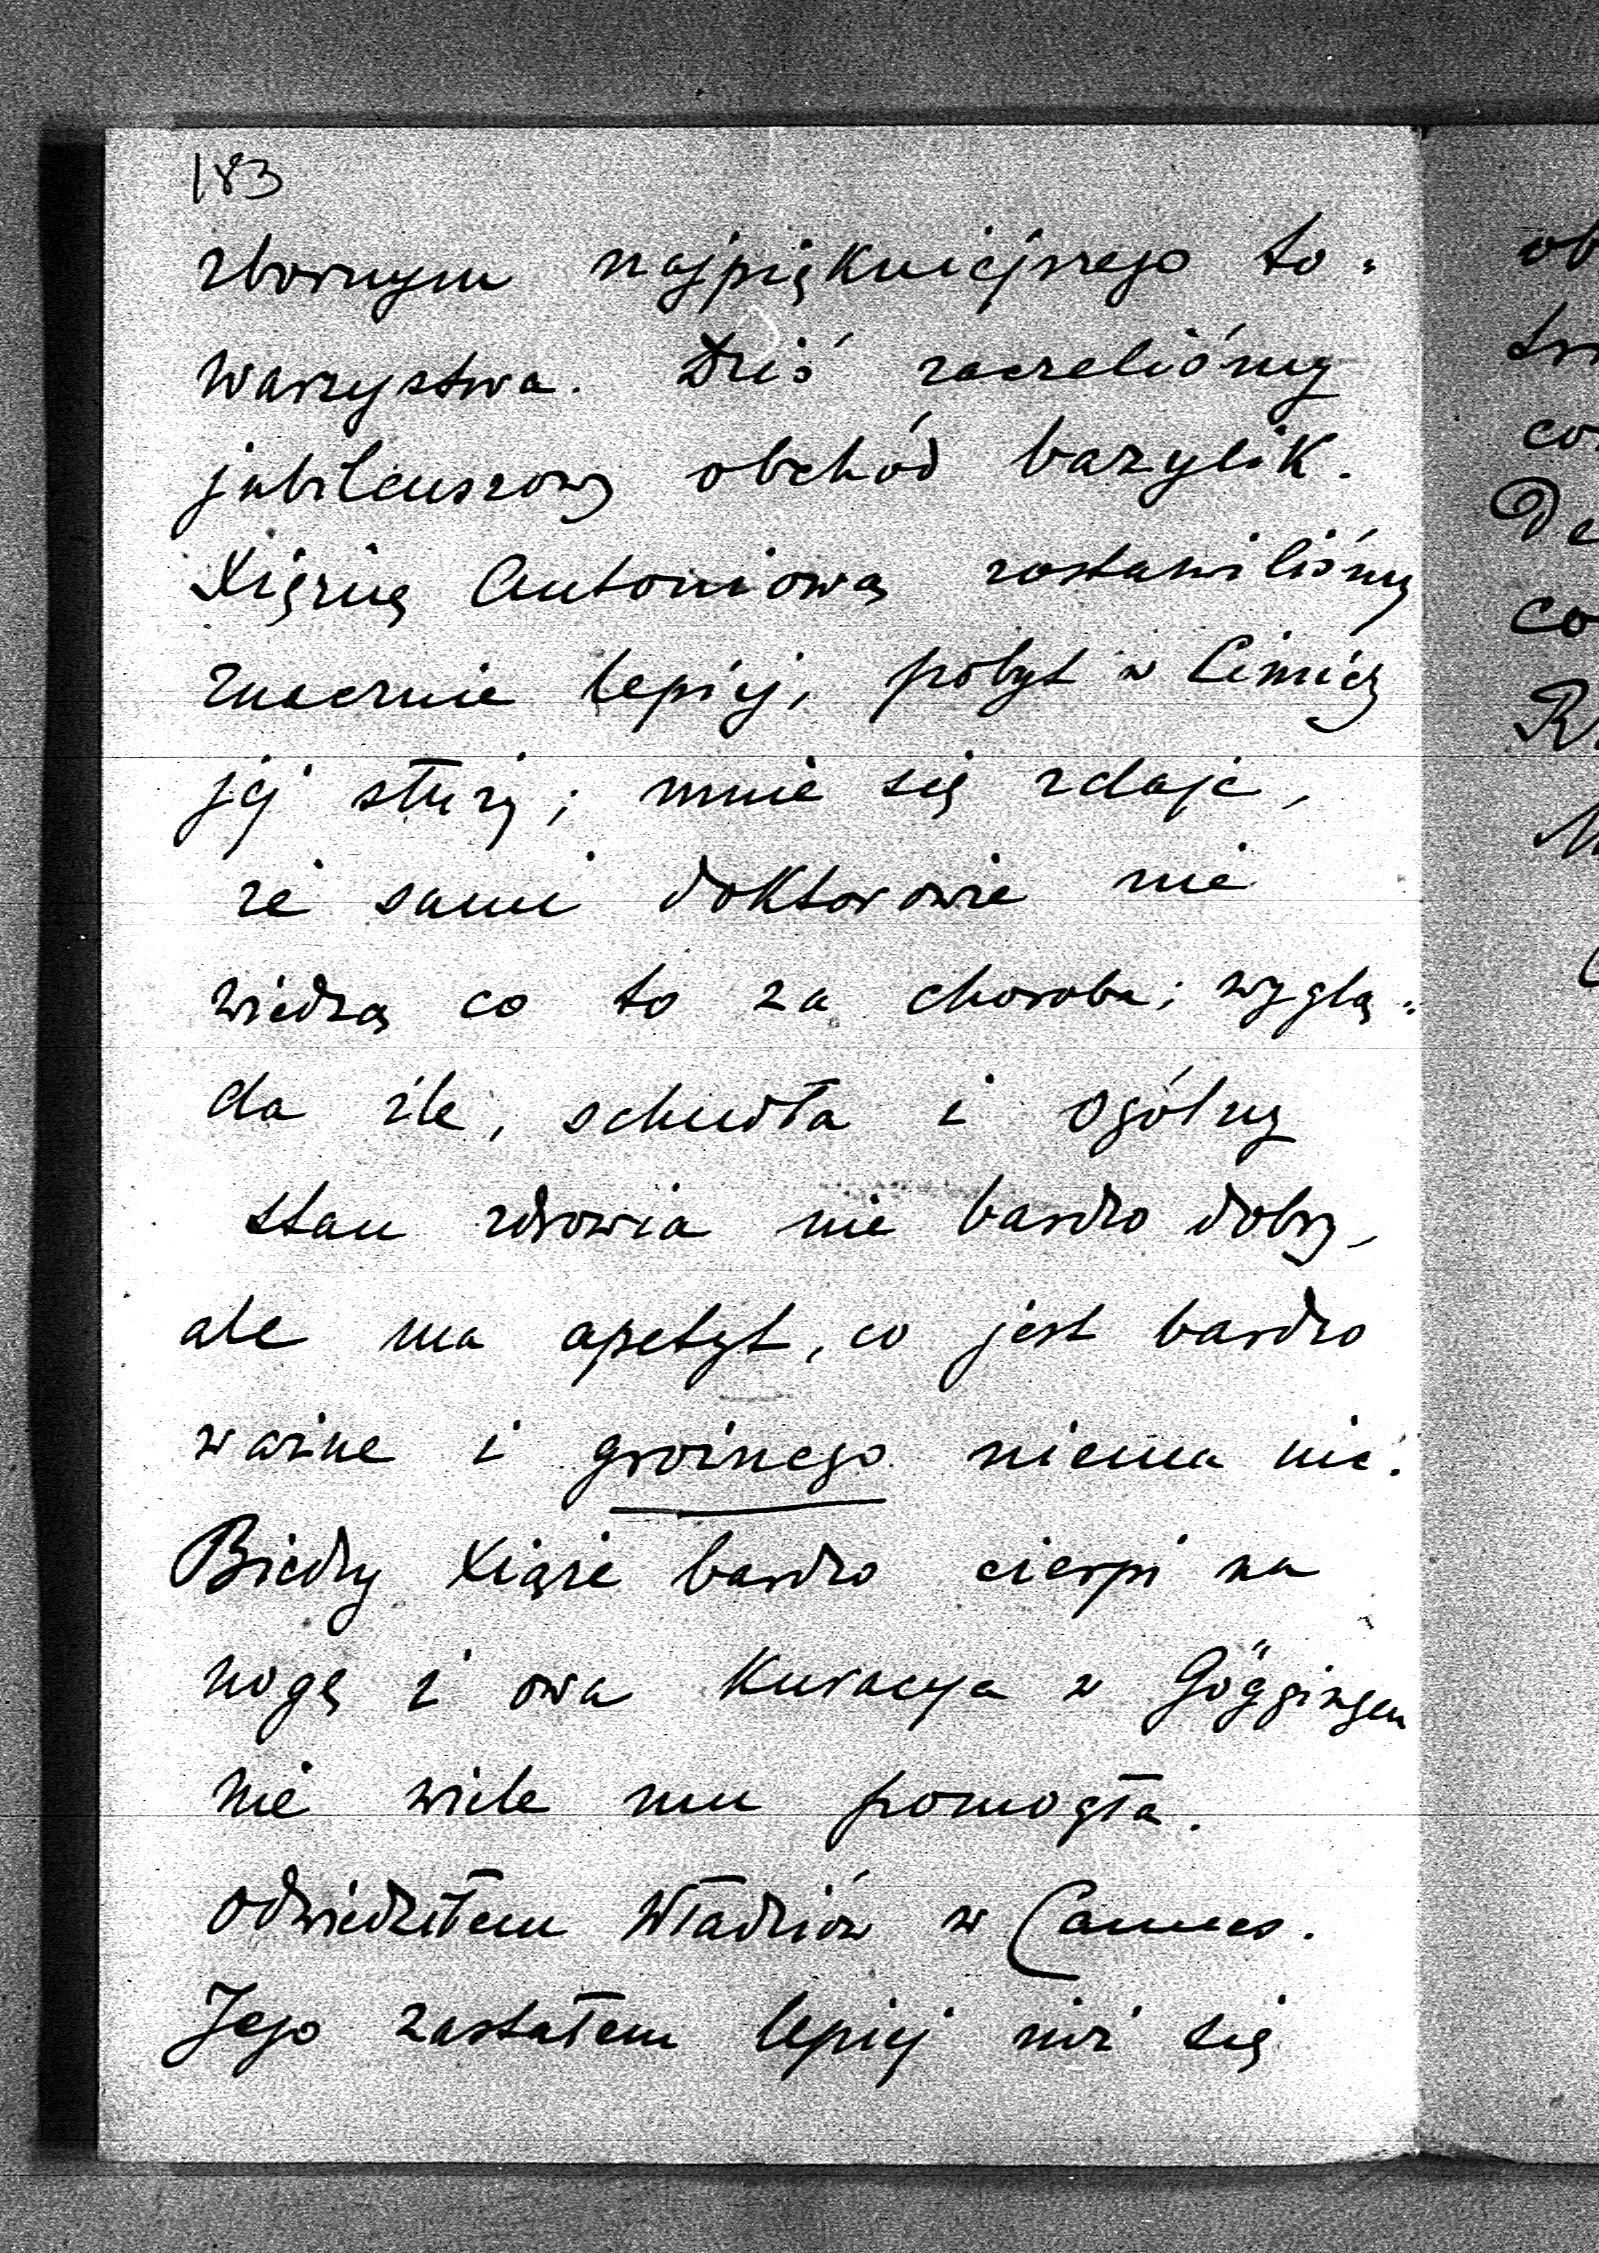 183
zbornym najpiękniejszego to=
warzystwa. Dziś zaczeliśmy
jubileuszowy obchód bazylik.
Xiężnę Antoniową zostawiliśmy
znacznie lepiej, pobyt w Cimiez
jej służy; mnie się zdaje,
że sami doktorowie nie
wiedzą co to za choroba; wyglą=
da źle, schudła i ogólny
stan zdrowia nie bardzo dobry,
ale ma apetyt, co jest bardzo
ważne i groźnego niema nic.
Biedny Xiąże bardzo cierpi na
nogę i owa kuracya w Göggingen
nie wiele mu pomogła.
Odwiedziłem Władziów w Cannes.
Jego zastałem lepiej niż się
ob
co
De
co